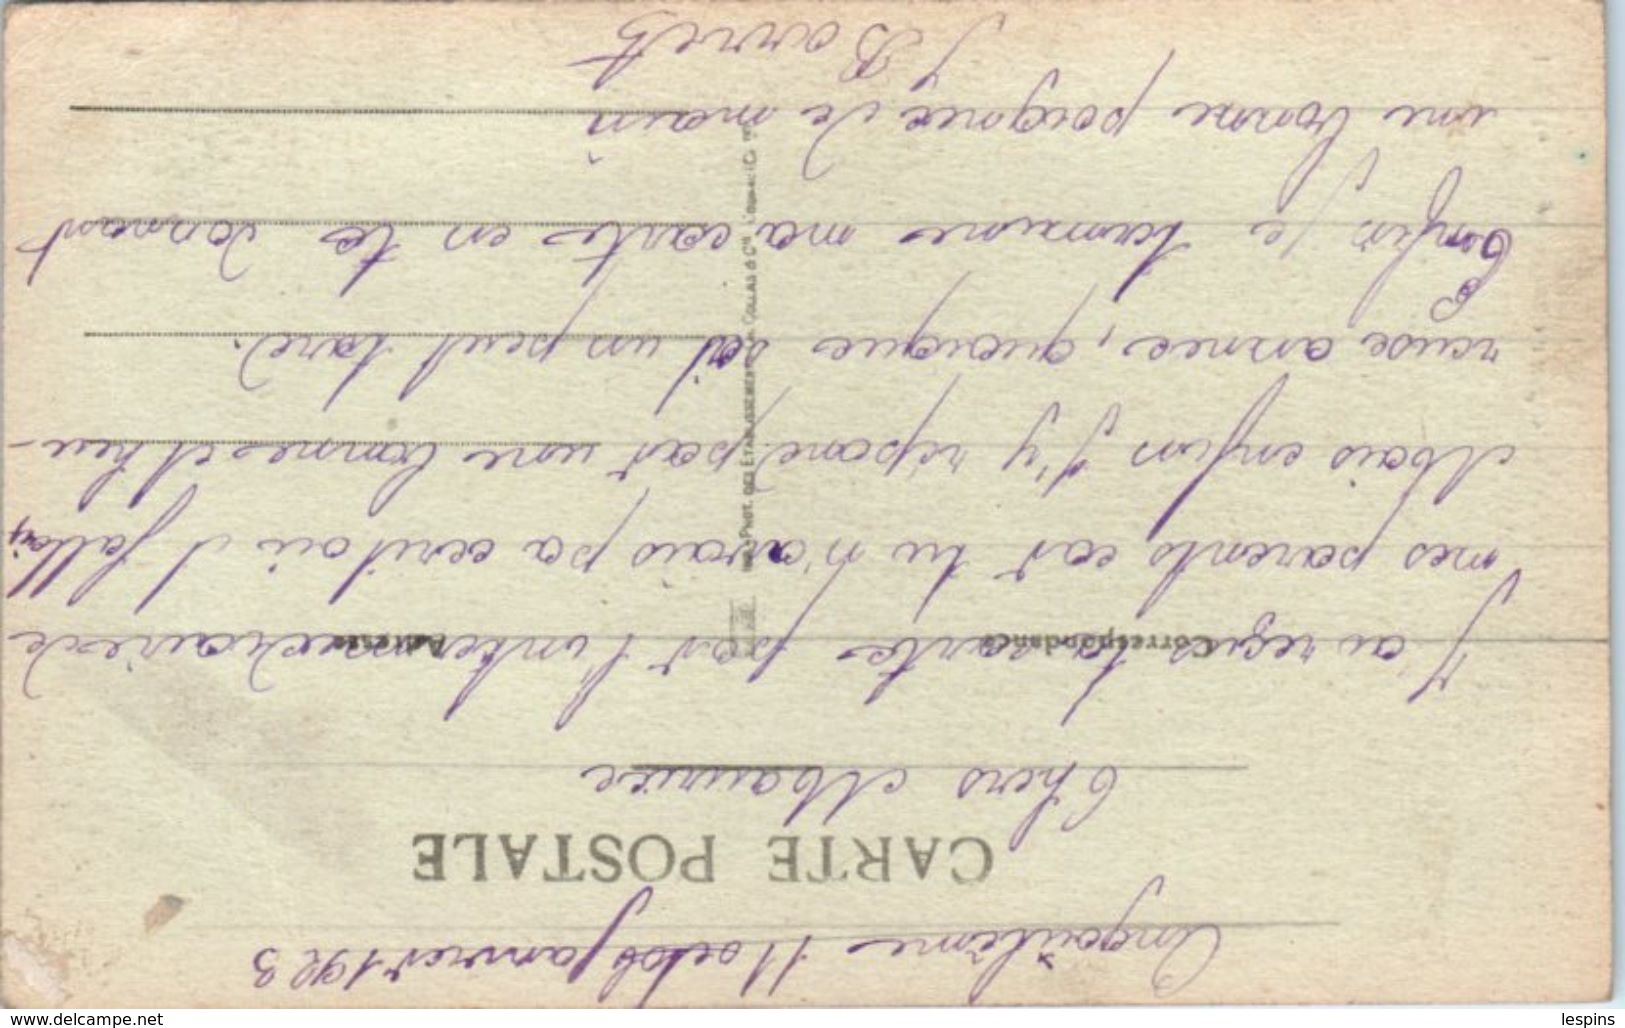 Angoulême 11 octob janvier 1923
CARTE POSTALE
Chers Maurice
Correspondance
Adresse
J'ai reçus ta carte par l'intermediaire de
mes parents car tu n'avais pa ecrit où I fallait
Mais enfin j'y répond par une bonne et heu-
reuse annee, quoique soit un peut tard.
Enfin je termine ma carte en te donnant
une bonne poignee de main
J Borret
PHOT. DES ETABLISSEMENTS COLLAS & Cie
www.delcampe.net
lespins